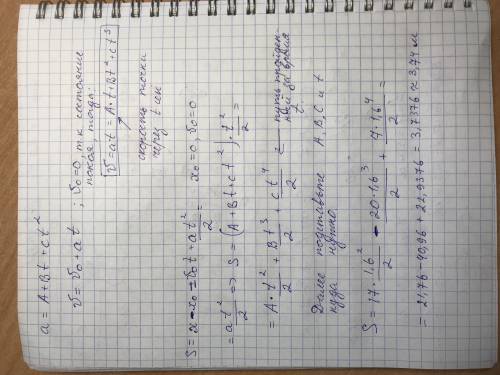 a = A + Bt + ct²
v = v₀ + at ; v₀ = 0, т к состояние
покоя, тогда:
v = at = A·t + Bt² + ct³
скорость точки
через t сек
S = x - x₀ = v₀t + at²/2 = x₀ = 0, v₀ = 0
= at²/2 => S = (A + Bt + ct²)·t²/2 =
= A·t²/2 + Bt³/2 + ct⁴/2 путь пройден-
ный за время
t.
Далее подставьте A, B, C и t
куда нужно
S = 17·1,6²/2 - 20·1,6³/2 + 7·1,6⁴/2 =
= 21,76 - 40,96 + 22,9376 = 3,7376 ≈ 3,74 м